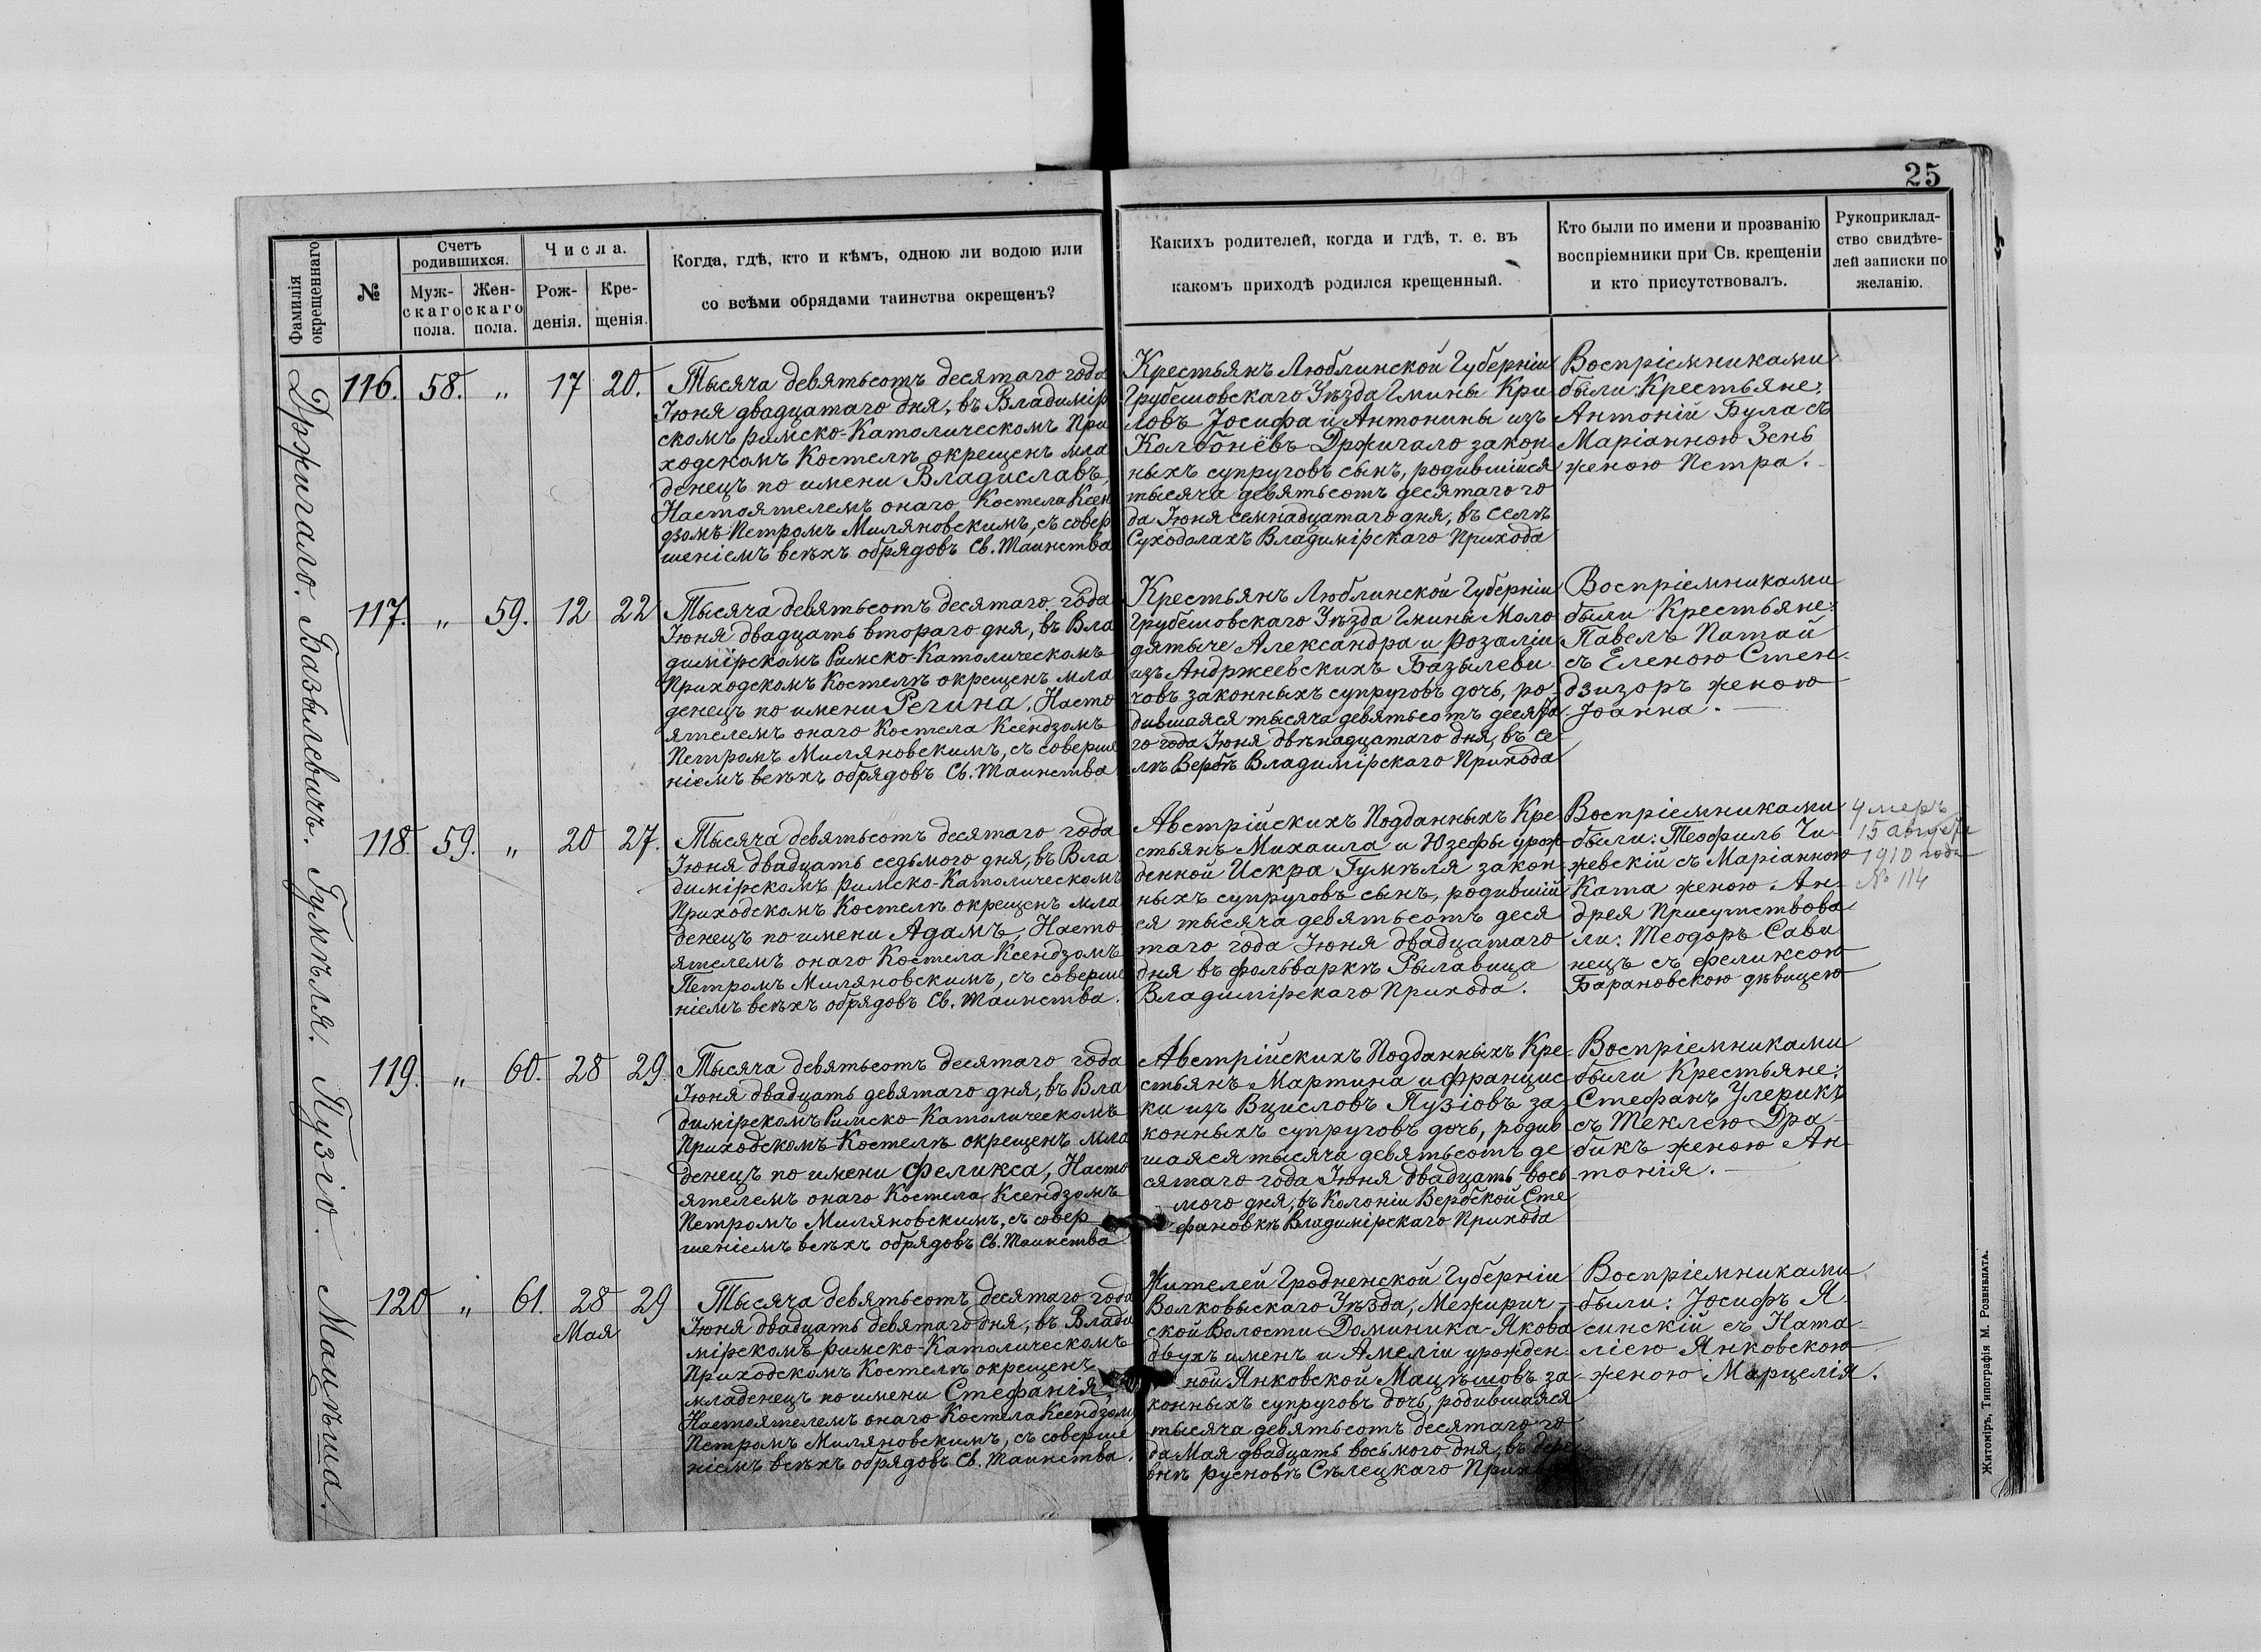 25
Фамилія
окрещеннаго
№
Счетъ
родившихся.
Муж-
скаго
пола.
Жен-
скаго
пола.
Числа.
Рож-
денія.
Кре-
щенія.
Когда, гдѣ, кто и кѣмъ, одною ли водою или
со всѣми обрядами таинства окрещенъ?
Какихъ родителей, когда и гдѣ, т. е. въ
какомъ приходѣ родился крещенный.
Кто были по имени и прозванію
воспріемники при Св. крещеніи
и кто присутствовалъ.
Рукоприклад-
ство свидѣте-
лей записки по
желанію.
Држигало.
116. 58. „ 17 20.
Тысяча девятьсотъ десятаго года
Іюня двадцатаго дня, въ Владимір
скомъ римско-Католическомъ При
ходскомъ Костелѣ окрещенъ мла
денецъ по имени Владиславъ,
Настоятелемъ онаго Костела Ксен
дзомъ Петромъ Миляновскимъ, съ совер
шеніемъ всѣхъ обрядовъ Св. Таинства
Крестьянъ Люблинской Губерніи
Грубешовскаго Уѣзда Гмины Кри
ловъ Іосифа и Антонины изъ
Колбонёвъ Држигало закон
ныхъ супруговъ сынъ, родившійся
тысяча девятьсотъ десятаго го
да Іюня семнадцатаго дня, въ селѣ
Суходолахъ Владимірскаго Прихода
Воспріемниками
были: Крестьяне:
Антоній Була съ
Маріанною Зень
женою Петра.
Базылевичъ.
117. „ 59. 12 22
Тысяча девятьсотъ десятаго года
Іюня двадцать втораго дня, въ Вла
димірскомъ Римско-Католическомъ
Приходскомъ Костелѣ окрещенъ мла
денецъ по имени Регина, Насто
ятелемъ онаго Костела Ксендзомъ
Петромъ Миляновскимъ, съ соверше
ніемъ всѣхъ обрядовъ Св. Таинства
Крестьянъ Люблинской Губерніи
Грубешовскаго Уѣзда Гмины Моло
дятыче Александра и Розаліи
изъ Андржеевскихъ Базылеви
човъ законныхъ супруговъ дочь, ро
дившаяся тысяча девятьсотъ десята
го года Іюня двѣнадцатаго дня, въ се
лѣ Вербѣ Владимірскаго Прихода
Воспріемниками
были Крестьяне:
Павелъ Патай
съ Еленою Стен-
дзизоръ женою
Іоанна.
Гумѣля.
118. 59. „ 20 27.
Тысяча девятьсотъ десятаго года
Іюня двадцать седьмого дня, въ Вла
димірскомъ Римско-Католическомъ
Приходскомъ Костелѣ окрещенъ мла
денецъ по имени Адамъ, Насто
ятелемъ онаго Костела Ксендзомъ
Петромъ Миляновскимъ, съ соверше
ніемъ всѣхъ обрядовъ Св. Таинства.
Австрійскихъ Подданныхъ Кре
стьянъ Михаила и Юзефы урож
денной Искра Гумѣля закон
ныхъ супруговъ сынъ, родившій
ся тысяча девятьсотъ деся
таго года Іюня двадцатаго
дня въ фольваркѣ Рылавица
Владимірскаго Прихода.
Воспріемниками
были: Теофиль Чи-
жевскій съ Маріанною
Ката женою Ан-
дрея Присутствова
ли: Теодоръ Сави
нецъ съ Феликсою
Барановскою дѣвицею
Умеръ
15 августа
1910 года
№ 114
Пузіо.
119. „ 60. 28 29.
Тысяча девятьсотъ десятаго года
Іюня двадцать девятаго дня, въ Вла
димірскомъ Римско-Католическомъ
Приходскомъ Костелѣ окрещенъ мла
денецъ по имени Феликса, Насто
ятелемъ онаго Костела Ксендзомъ
Петромъ Миляновскимъ, съ совер
шеніемъ всѣхъ обрядовъ Св. Таинства
Австрійскихъ Подданныхъ Кре-
стьянъ Мартина и Францис
ки изъ Вцисловъ Пузіовъ за-
конныхъ супруговъ дочь, родив
шаяся тысяча девятьсотъ де
сятаго года Іюня двадцать вось
мого дня, въ Колоніи Вербской Сте
фановкѣ Владимірскаго Прихода
Воспріемниками
были Крестьяне:
Стефанъ Улерикъ
съ Теклею Дра-
бикъ женою Ан-
тонія.
Мацѣша.
120 „ 61. 28 29
Мая
Тысяча девятьсотъ десятаго года
Іюня двадцать девятаго дня, въ Влади
мірскомъ римско-Католическомъ
Приходскомъ Костелѣ окрещенъ
младенецъ по имени Стефанія,
Настоятелемъ онаго Костела Ксендзомъ
Петромъ Миляновскимъ, съ соверше
ніемъ всѣхъ обрядовъ Св. Таинства.
Жителей Гродненской Губерніи
Волковыскаго Уѣзда, Межирич-
ской Волости Доминика-Якова
двухъ именъ и Амеліи урожден-
ной Янковской Мацѣшовъ за-
конныхъ супруговъ дочь, родившаяся
тысяча девятьсотъ десятаго го
да Мая двадцать восьмого дня, въ дере
внѣ Русновѣ Сѣлецкаго
Воспріемниками
были: Іосифъ Я-
синскій съ Ната-
ліею Янковскою
женою Марцелія.
Житоміръ, Типографія М. Розенблата.